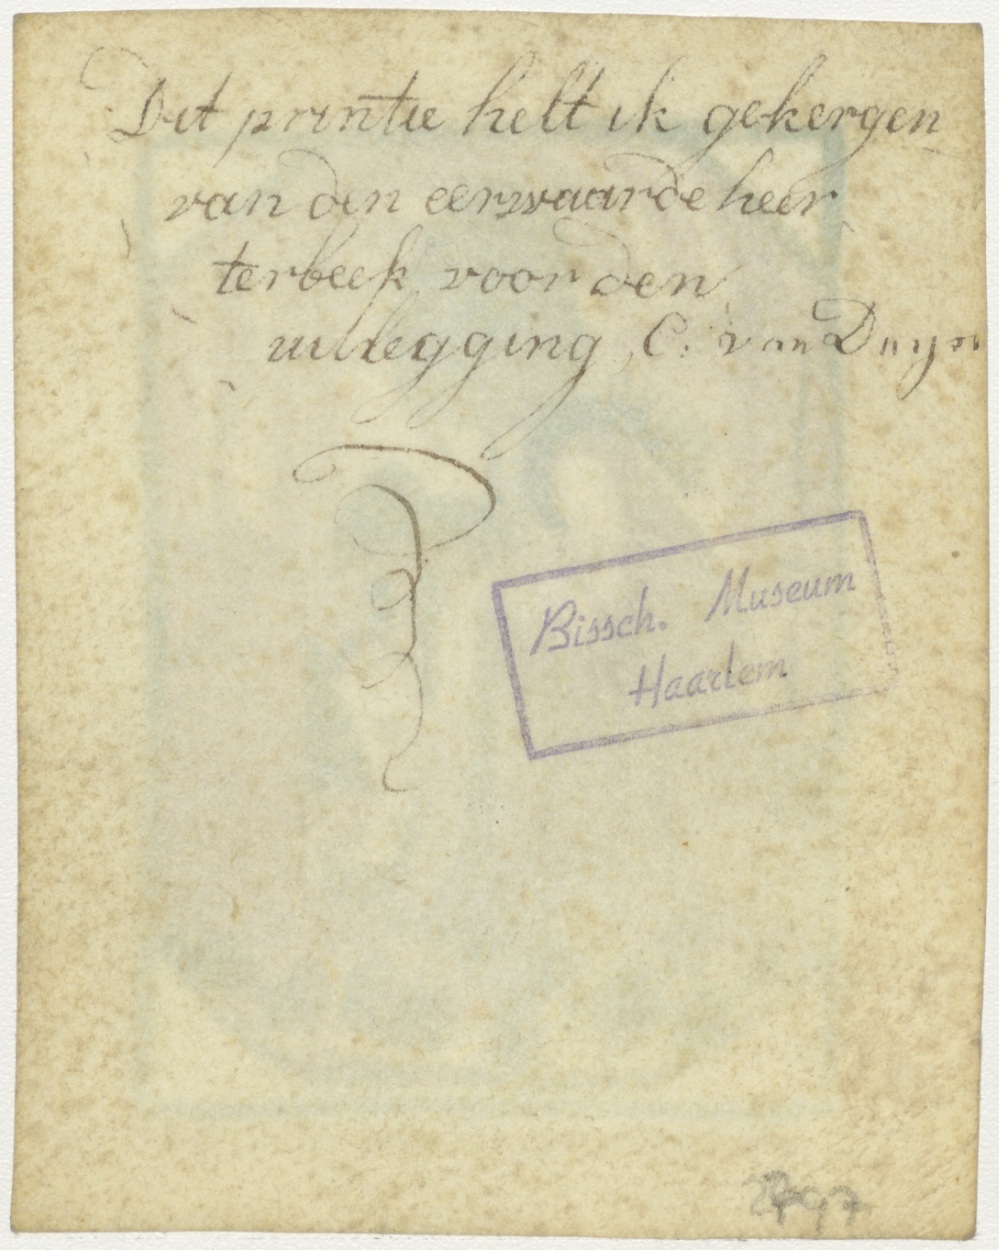 Dit printie helt ik gekergen
van den eerwaarde heer
terbeek voor den
uitlegging, C. van Duyn
Bissch. Museum
Haarlem